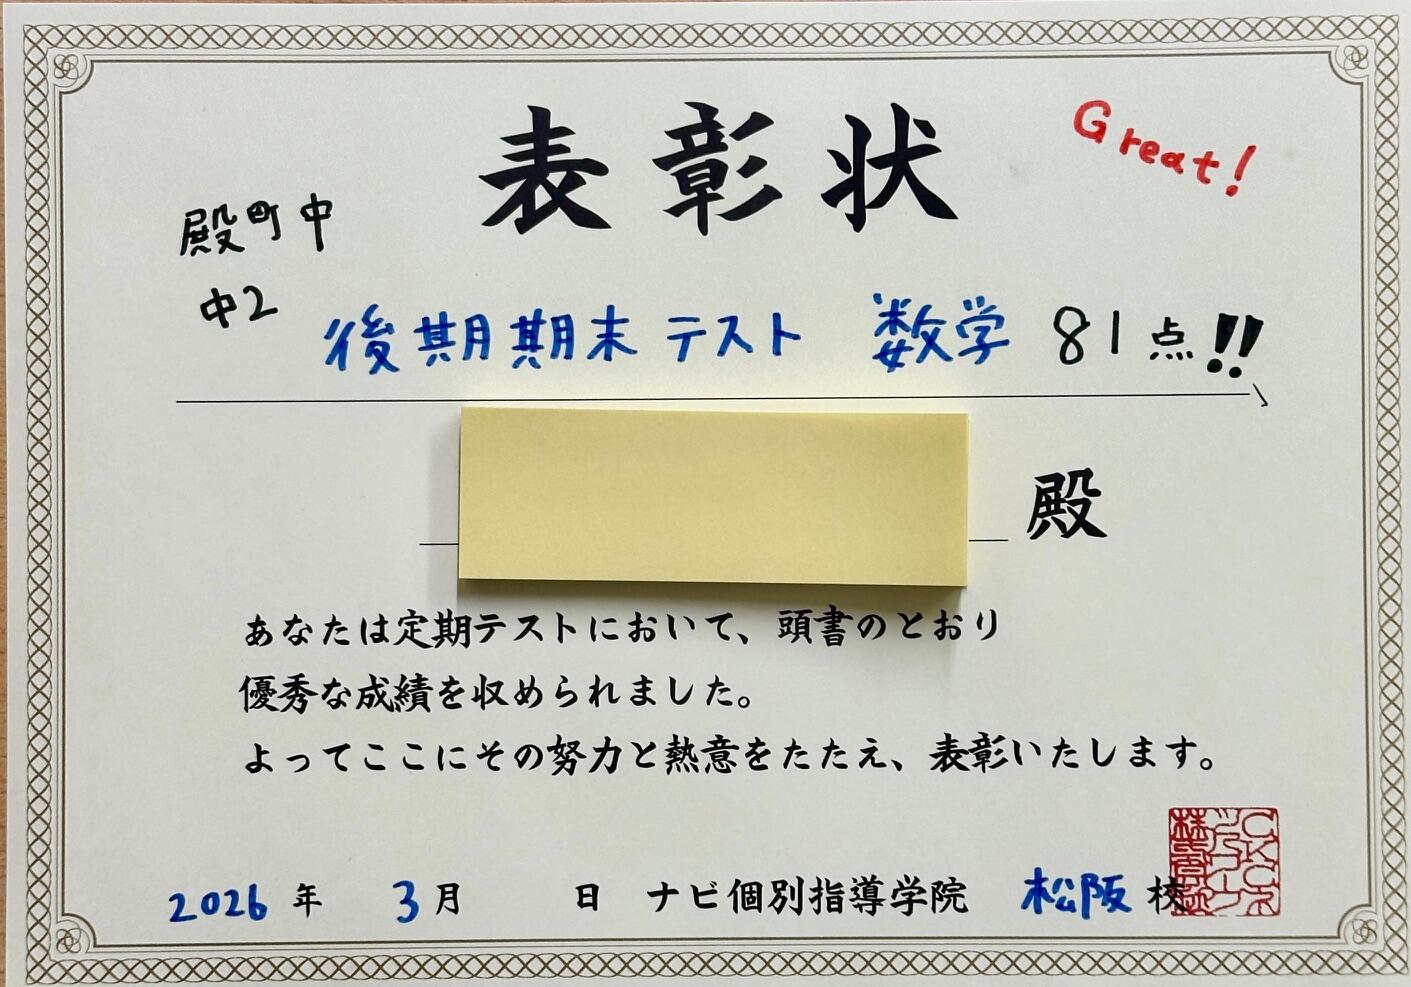 表彰状
Great!
殿町中
中2
後期期末テスト 数学 81点!!
殿
あなたは定期テストにおいて、頭書のとおり
優秀な成績を収められました。
よってここにその努力と熱意をたたえ、表彰いたします。
2026年 3月 日 ナビ個別指導学院 松阪校